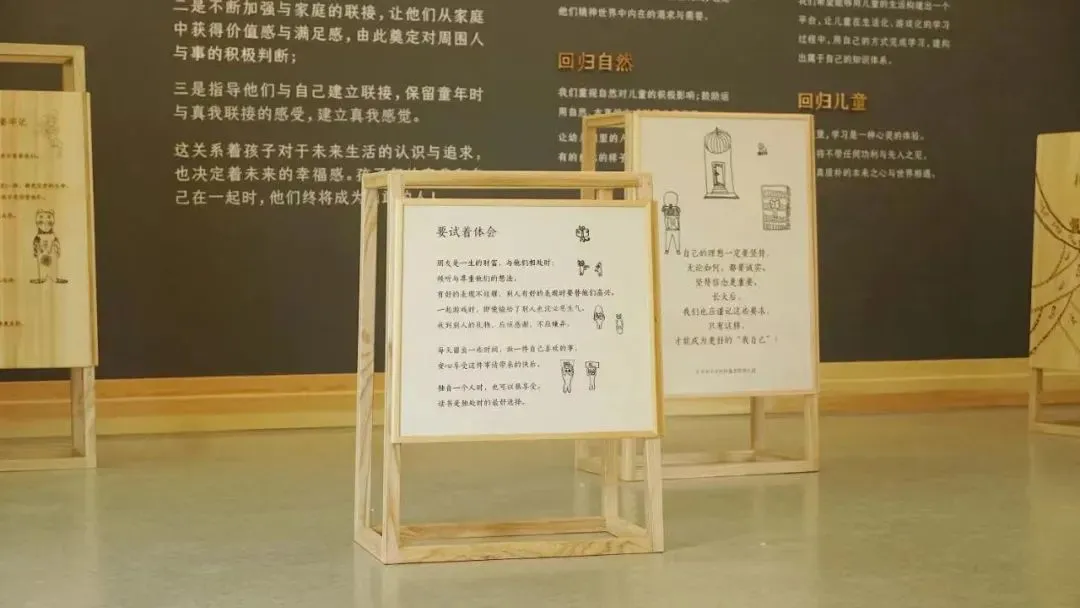 二是不断加强与家庭的联接，让他们从家庭
中获得价值感与满足感，由此奠定对周围人
与事的积极判断；
三是指导他们与自己建立联接，保留童年时
与真我联接的感受，建立真我感觉。
这关系着孩子对于未来生活的认识与追求，
也决定着未来的幸福感。孩子
己在一起时，他们终将成为
的人！
他们精神世界中内在的渴求与需要。
回归自然
我们重视自然对儿童的积极影响；鼓励运
用自然
让幼
里的
有的
的样子
我们希望能够用儿童的生活构建出一个
平台，让儿童在生活化、游戏化的学习
过程中，用自己的方式完成学习，建构
出属于自己的知识体系。
回归儿童
童，学习是一种心灵的体验。
将不带任何功利与先入之见，
真质朴的本来之心与世界相遇。
要试着体会
朋友是一生的财富，与他们相处时：
倾听与尊重他们的想法。
有好的表现不炫耀，别人有好的表现时要替他们高兴。
一起游戏时，即使输给了别人也没必要生气。
收到别人的礼物，应该感谢，不应嫌弃。
每天留出一些时间，做一件自己喜欢的事，
安心享受这件事情带来的快乐。
独自一个人时，也可以很享受。
读书是独处时的最好选择。
自己的理想一定要坚持。
无论如何，都要诚实。
坚持信念是重要。
长大后，
我们也应谨记这些要求。
只有这样，
才能成为更好的“我自己”！